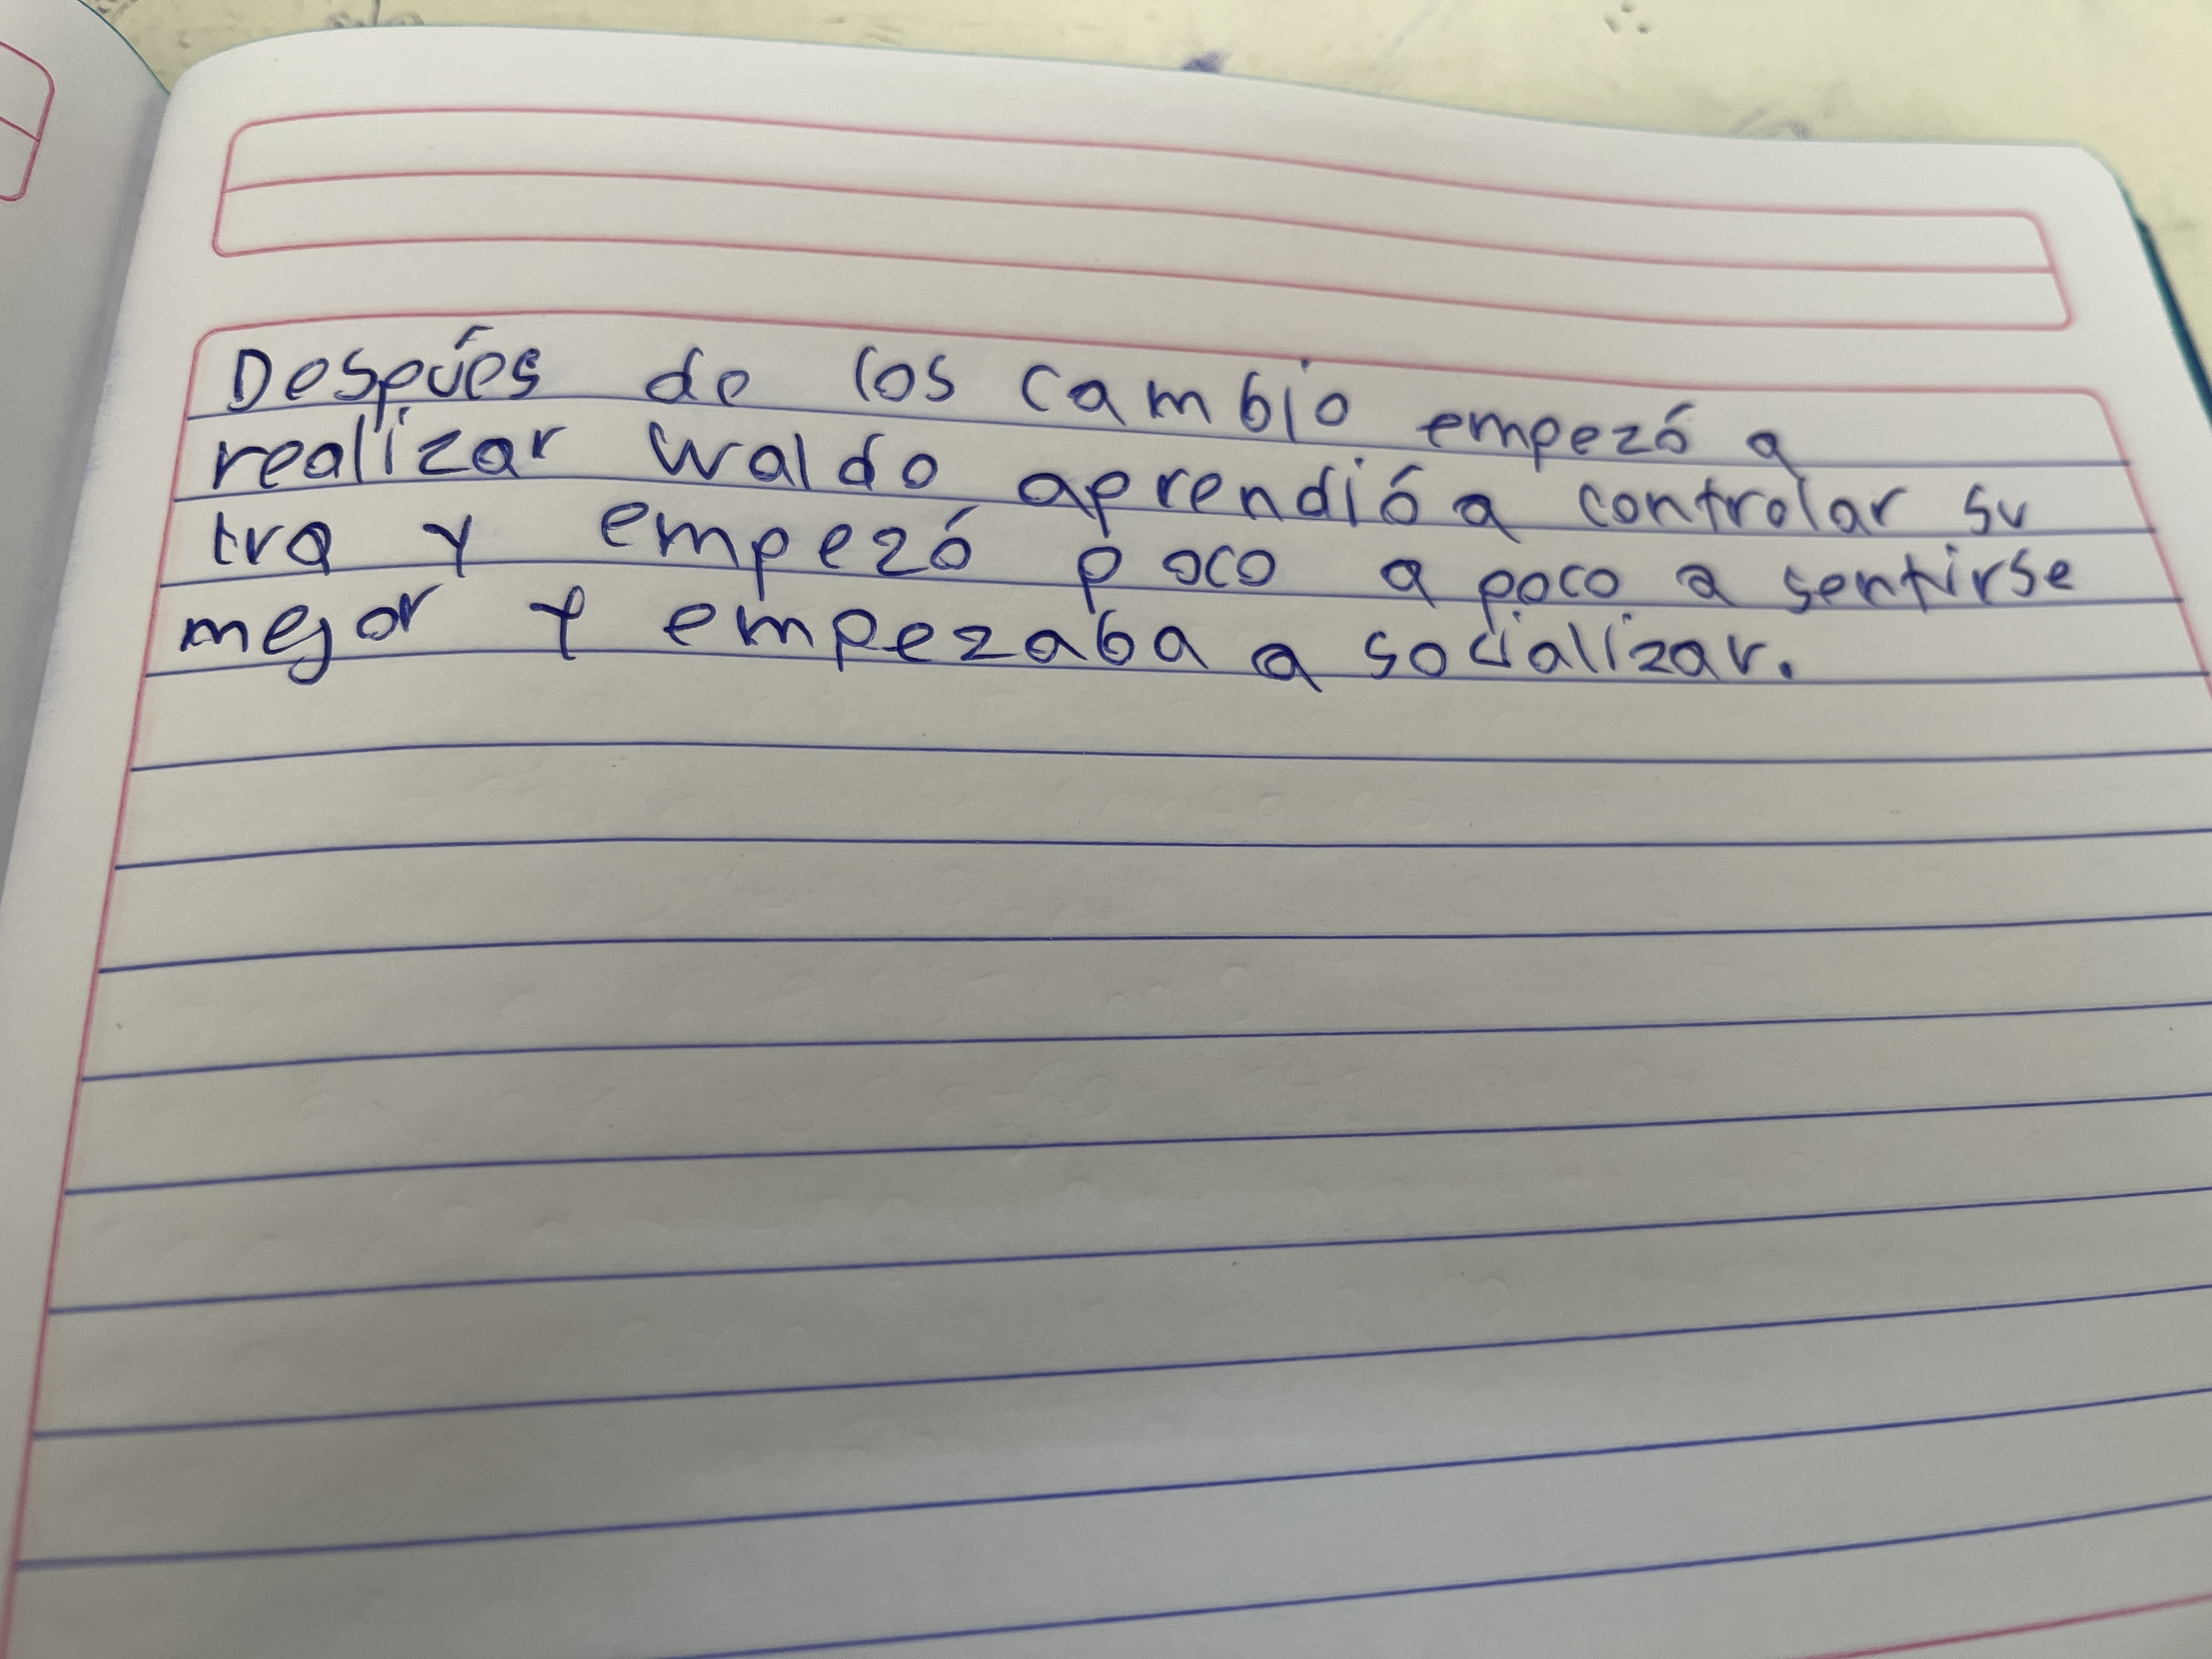 Despúes de los cambio empezó a
realizar waldo aprendió a controlar su
ira y empezó poco a poco a sentirse
mejor y empezaba a socializar.